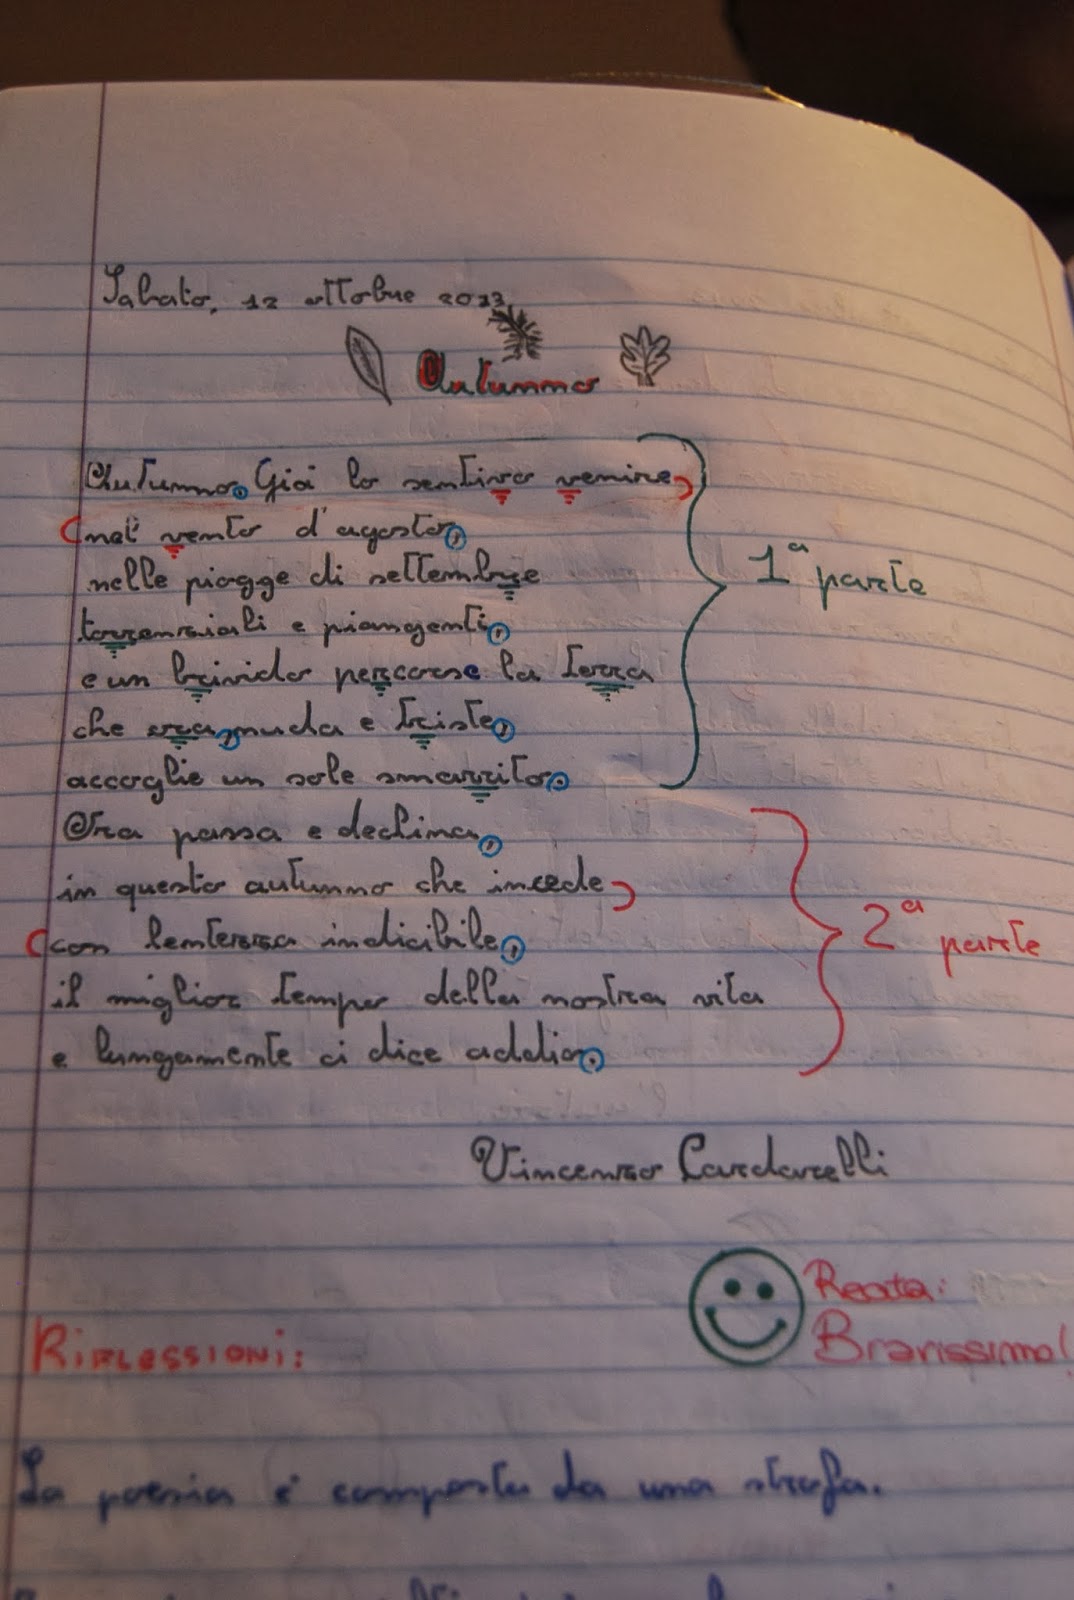 Sabato, 12 ottobre 2013
Autunno
Autunno. Già lo sentivo venire
nel vento d'agosto,
nelle piogge di settembre
torrenziali e piangenti,
e un brivido percorse la terra
che ora, nuda e triste,
accoglie un sole smarrito.
Ora passa e declina,
in questo autunno che incede
con lentezza indicibile,
il miglior tempo della nostra vita
e lungamente ci dice addio.
1ª parte
2ª parte
Vincenzo Cardarelli
Recita:
Bravissimo!
RIFLESSIONI:
La poesia è composta da una strofa.